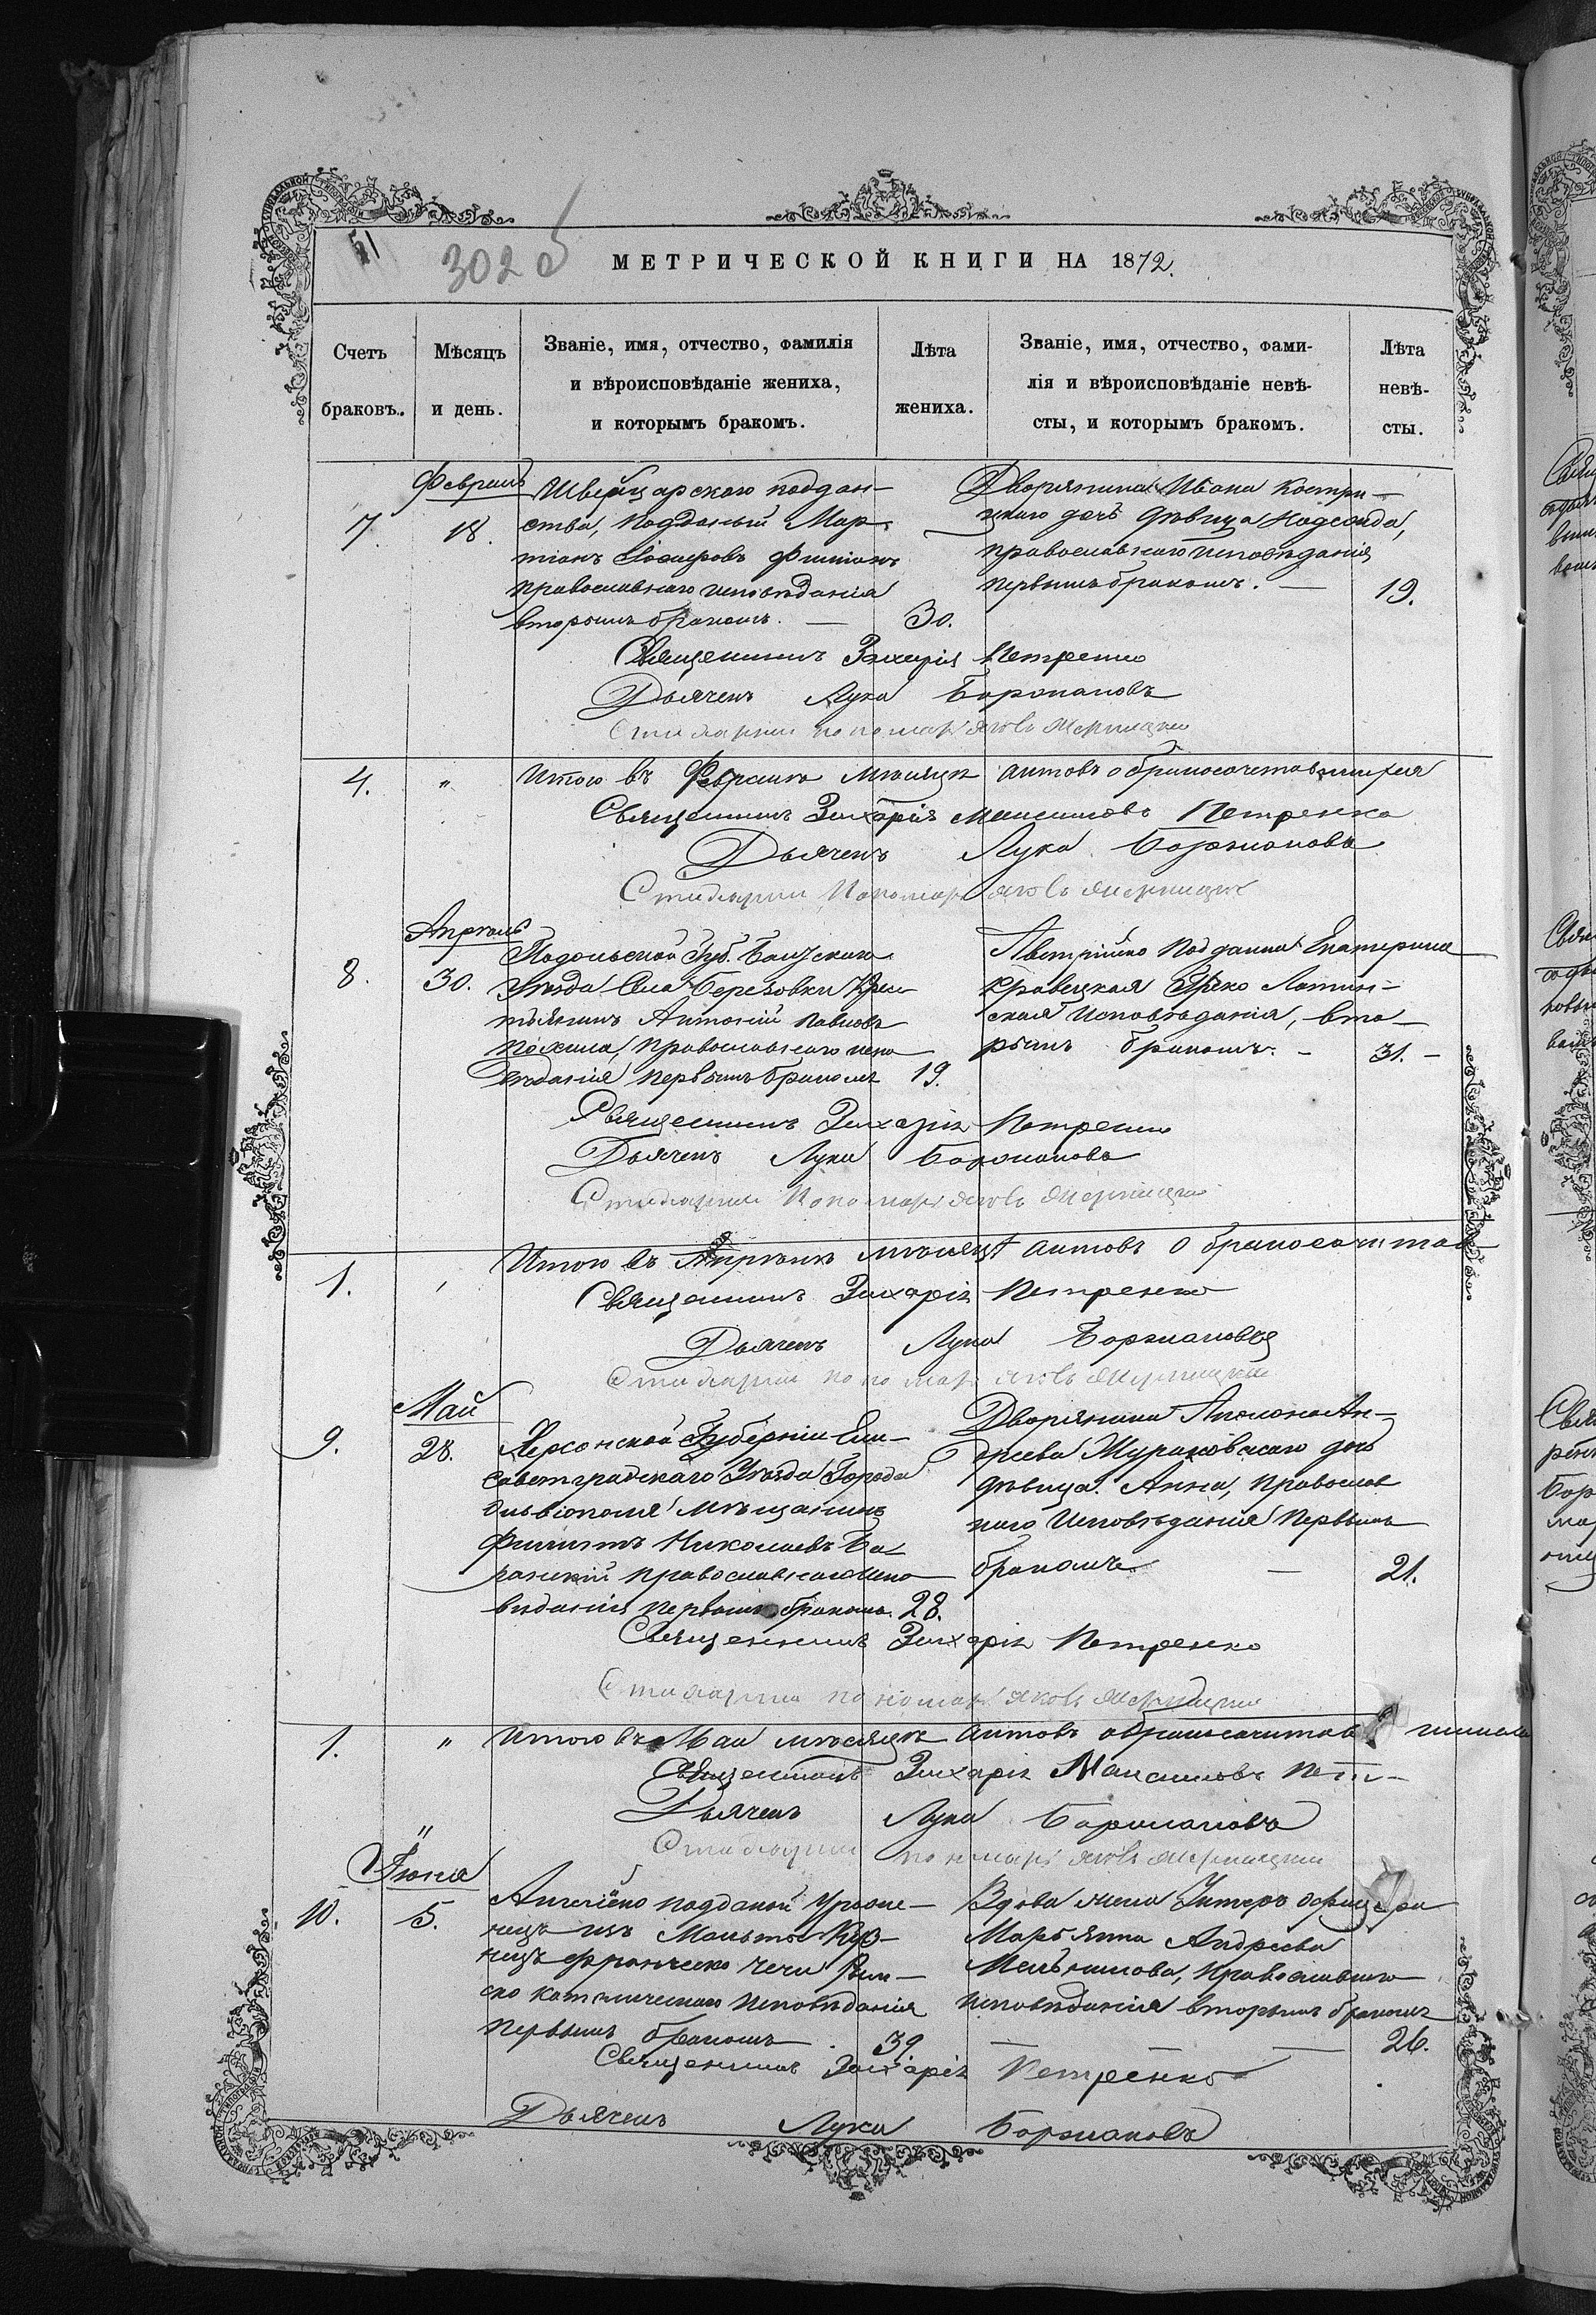 51
302 об
МЕТРИЧЕСКОЙ КНИГИ НА 1872.
Счетъ браковъ.
Мѣсяцъ и день.
Званіе, имя, отчество, фамилія
и вѣроисповѣданіе жениха,
и которымъ бракомъ.
Лѣта жениха.
Званіе, имя, отчество, фами-
лія и вѣроисповѣданіе невѣ-
сты, и которымъ бракомъ.
Лѣта невѣ-
сты.
Февраль
7.
18.
Швейцарского поддан-
ства, подданый Мар-
православнаго исповѣданія
вторымъ бракомъ. —
30.
Дворянина Ивана Костри-
цкаго дочь дѣвица Надежда,
православнаго исповѣданія
первымъ бракомъ. —
19.
Священникъ Захарія Петренко
Дьячекъ Лука Боржаковъ
Стихарный пономарь Яковъ
4.
"
Итого въ Февралѣ мѣсяцѣ актовъ о бракосочетавшихся
Священникъ Захарія Максимовъ Петренко
Дьячекъ Лука Боржаковъ
Стихарный Пономарь Яковъ
Апрѣль
8.
30.
Подольской Губ. Балтского
Уѣзда Села Березовки Крес-
тьянинъ Антоній Павловъ
православнаго испо-
вѣданія первымъ бракомъ
19.
Австрійско подданна Екатерина
Кравецкая Греко Латин-
ская Исповѣданія, вто-
рымъ бракомъ. -
31. -
Священникъ Захарія Петренко
Дьячекъ Лука Боржаковъ
Стихарный Пономарь Яковъ
1.
Итого въ Апрѣлѣ мѣсяцѣ актовъ о бракосочетав
Священникъ Захарія Петренко
Дьячекъ Лука Боржаковъ
Стихарный пономарь Яковъ
Май
9.
28.
Херсонской Губерніи Ели-
саветградскаго Уѣзда Города
Ольвіополя мѣщанинъ
Филиппъ Николаевъ Ба-
ранскій православнаго испо-
вѣданія первымъ бракомъ.
28.
Дворянина Аполона Ан-
дреева Жураковскаго дочь
дѣвица Анна, православ
наго Исповѣданія первымъ
бракомъ. —
21.
Священникъ Захарія Петренко
Стихарный пономарь Яковъ
1.
"
Итого въ Маи мѣсяцѣ актовъ о бракосочетав
Священникъ Захарія Максимовъ Пет-
Дьячекъ Лука Боржаковъ
Стихарный пономарь Яковъ
"
Іюня
10.
5.
Англійско подданой уроже-
нецъ изъ Мальты Куп-
нецъ Франческо Чечи Рим-
ско католическаго исповѣданія
первымъ бракомъ.
39.
Вдова жена Унтеръ офицера
Марьянна Андреева
Мельникова, православнаго
исповѣданія вторымъ бракомъ
26.
Священникъ Захарія Петренко
Дьячекъ Лука Боржаковъ